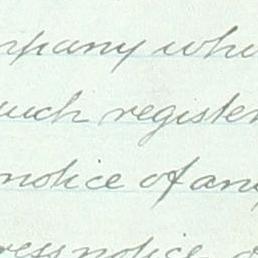 mpany whi
such register
notice of any
ress notice